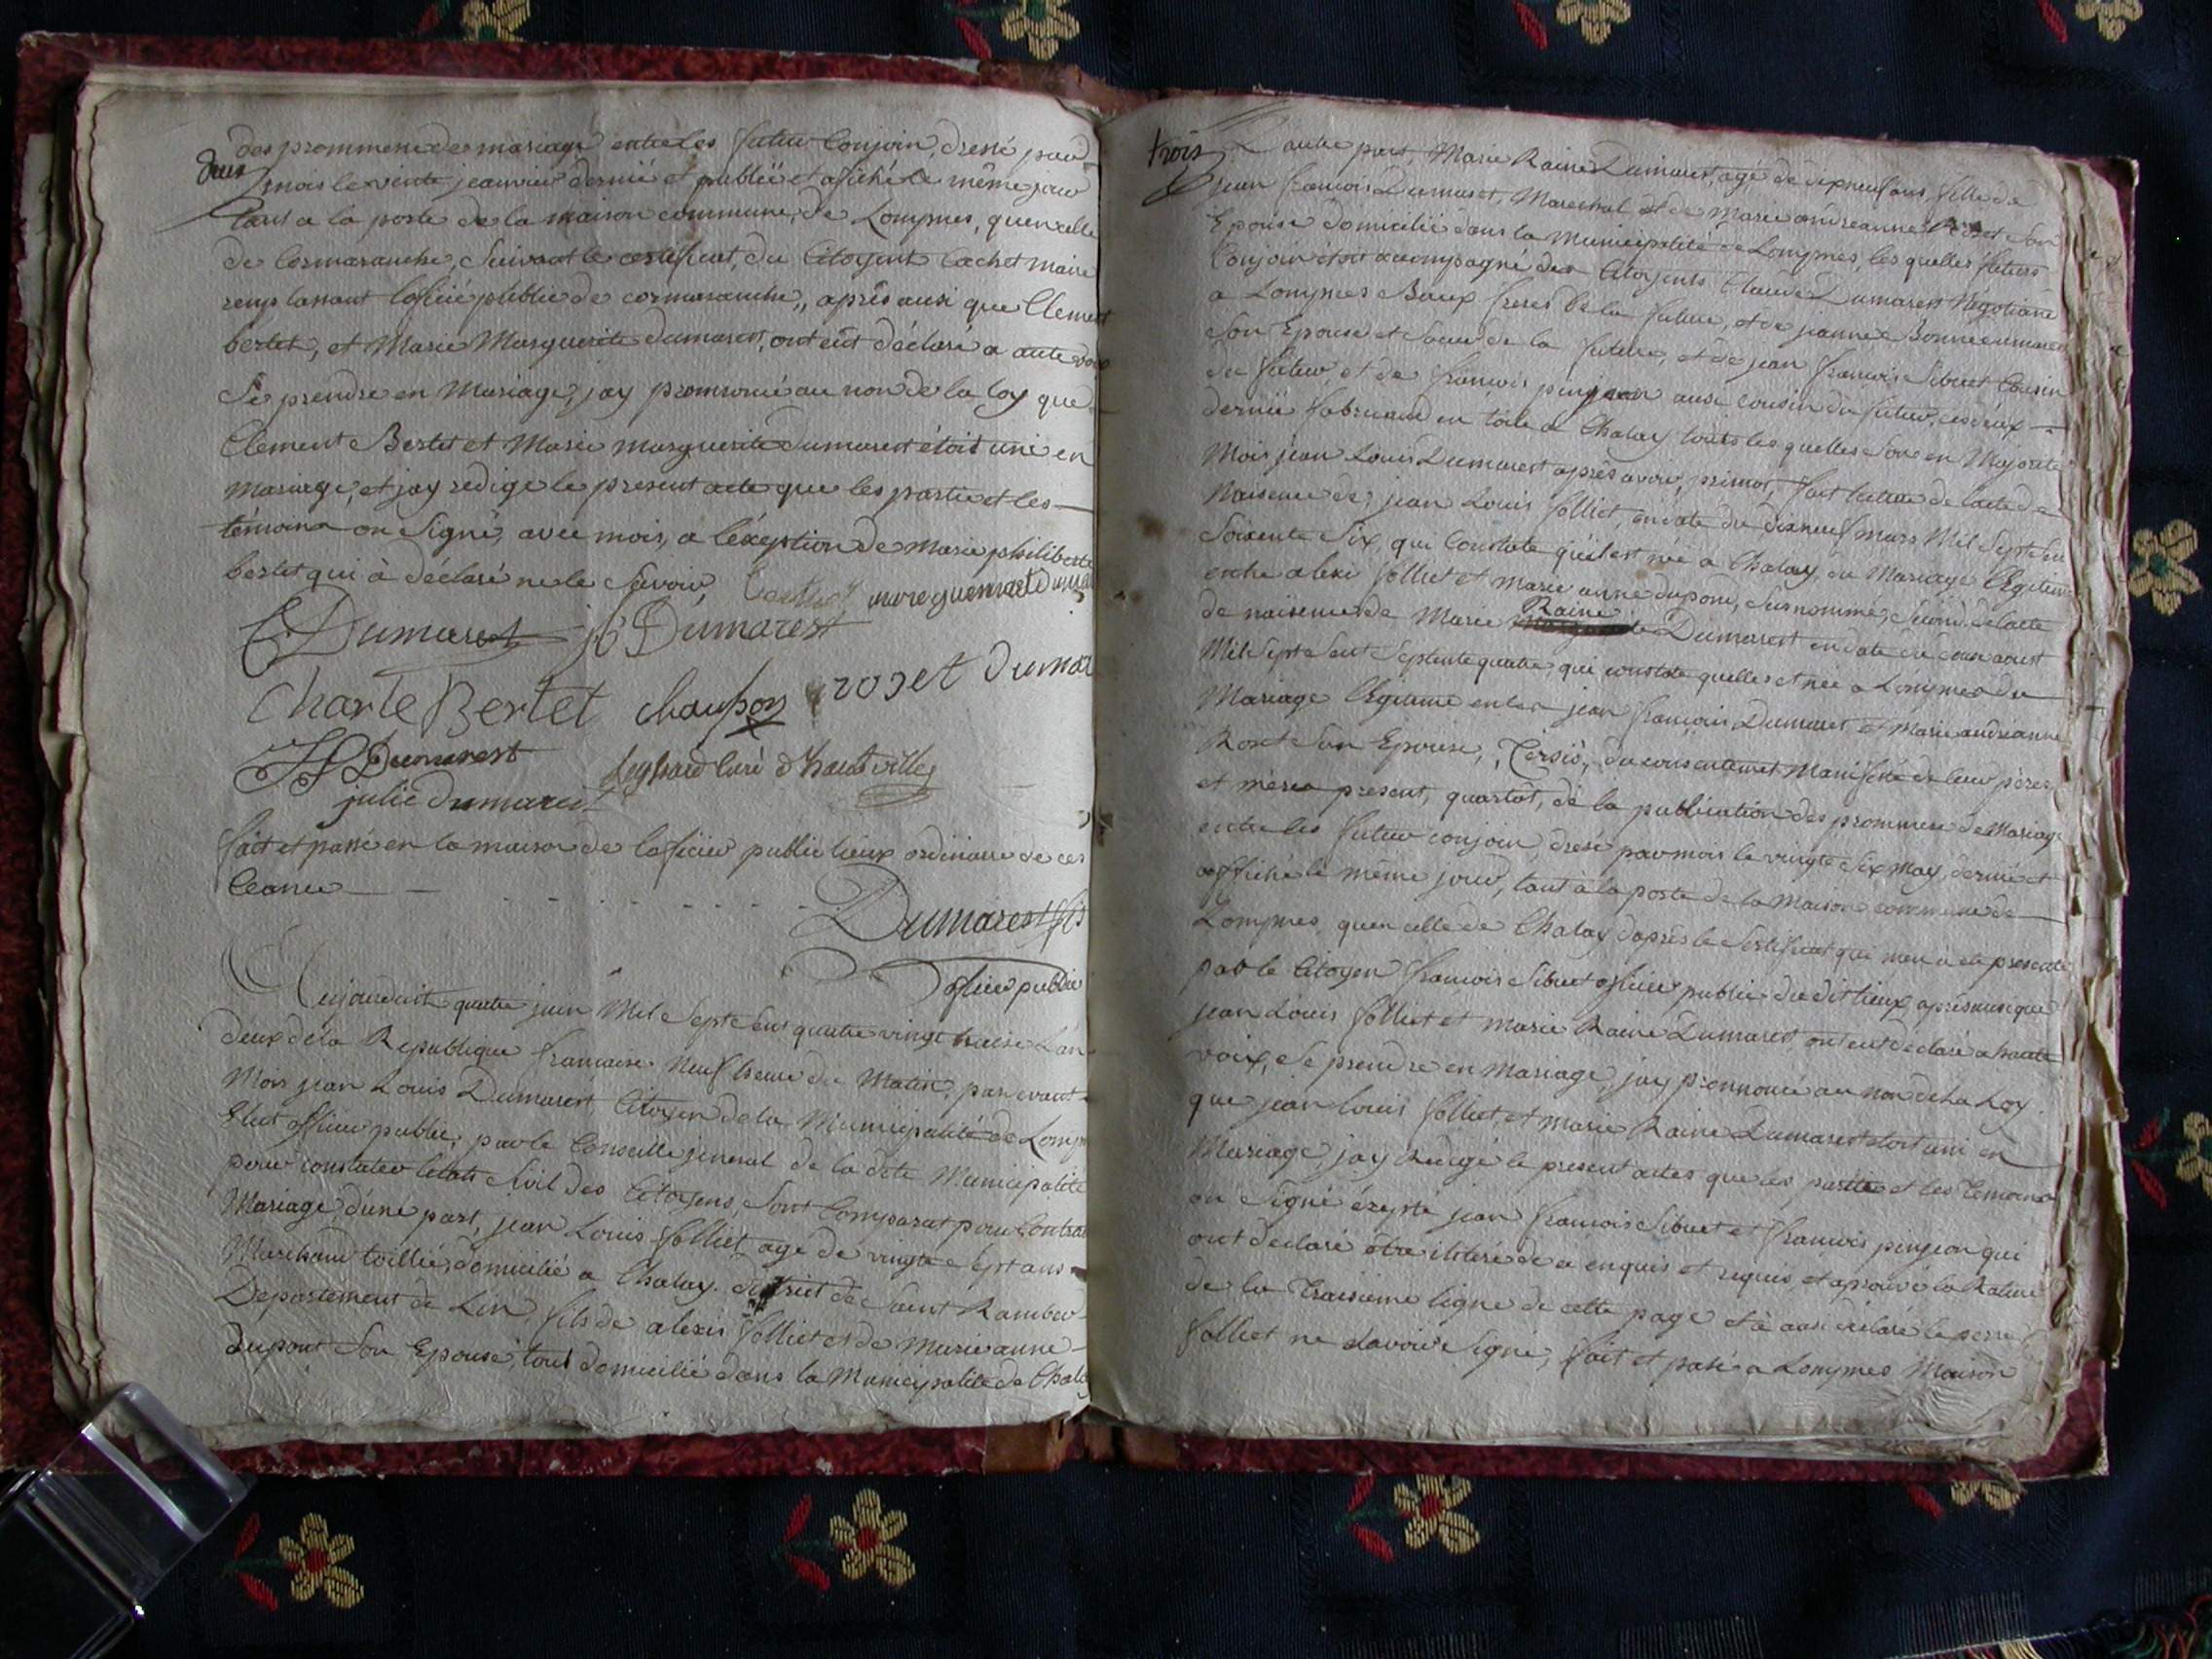 deux
des prommene de mariage entre les futur Conjoin, dressé par
mois le vente jeanvier dernié et publié et afiché le même jour
tant a la porte de la maison commune, de Lompnes, quen celle
de Cormaranche, Suivant le certificat, du Citoyent Cachet maire
remplassant loficié public de cormaranche, aprés ausi que Clement
bertet, et Marie Marguerite dumarest, ont eüt déclaré a aute voix
Se prendre en Mariage, jay promnoncé au non de la loy que
Clement Bertet et Marie marguerite dumarest étoit uni en
mariage, et jay redige le present acte que les partie et les
témoins on Signé, avec mois, a léxeption de Marie philiberte
bertet qui à déclaré ne le Savoir,
CDumarest jB Dumarest
Charle Bertet chaupon roset dumar
JJ Dumarest curé d'hauteville
julie dumarest
fait et passé en la maison de loficier public lieux ordinaire de ces
Ceance
Dumarest fils
oficier public
Aujourduit quatre juin Mil Sept Sent quatre vingt traise Lan
deux de la Republique francaise Neuf heure du Matin, par devant
Mois jean Louis Dumarest Citoyen de la Municipalité de Lomp
Elut officier public, par le Conseille jeneral de la dite Municipalité
pour constater letats Sivil des Citoyens, Sont Comparut pour Contrat
Mariage dune part, jean Louis folliet agé de vingte Sept ans
Marchand toillié, domicilié a Chalay. district de Saint Ramber
Departement de Lin, fils de alexis folliet et de Marie anne
dupont Son Epouse, tout domicilié dans la Municipalité de Chala
trois
D'autre part, Marie Raine Dumarest, agé de dixneuf ans, fille de
jean francois Dumarest, Marechal et de Marie andréanne Roset Son
Epouse domicilié dans la Municipalité de Lompnes, les quelles futurs
Conjoin étoit acompagné des Citoyents Claude Dumarest Négotiant
a Lompnes Baux freres de la future, et de jeanne Bonne dumarest
Son Epouse et Sœur de la future, et de jean francois Sibuet Cousin
du futur, et de francois pinjeon ausi cousin du futur, ces deux
dernié fabricand en toile a Chalay touts les quelles Son en Majorité
Mois jean Louis Dumarest aprés avoir, primot, fait lecture de lacte de
Naisence de, jean Louis folliet, en date du dixneuf mars Mil Sept Sen
Soixente Six, qui Constate quil est née a Chalay, du Mariage légitime
entre alexi folliet et marie anne dupont, Surnommé, Second. de lacte
de naisence de Marie Raine Dumarest en date du onse aoust
Mil Sept Sent Septente quatre, qui constate quelle et née a Lompnes du
Mariage légitime entre jean francois Dumarest et Marie andréanne
Roset Son Epouse, Tersio, du consentement Manifesté de leur péres
et méres present, quartot, de la publication des prommese de Mariage
entre les futur conjoin, dresé par mois le vingte Six May, dernié et
affiché le même jour, tant à la porte de la Maison commune de
Lompnes, quen celle de Chalay daprés le Sertificat qui men à été presenté
par le Citoyen francois Sibuet oficier public du dit lieux, aprés ausi que
jean Louis folliet et marie Raine Dumarest ont eut déclaré a haute
voix, Se prendre en Mariage, jay prennoncé au non de La Loy
que jean louis folliet, et marie Raine Dumarest étoit uni en
Mariage, jay Redigé le present actes que les partie et les Temoins
on Signé éxepté jean francois Sibuet et francois pinjeon qui
ont declaré étre iliteré de ce enquis et requis, et aprouvé la Rature
de la Traisieme ligne de cette page et à ausi déclaré le perre
folliet ne Savoire Signé, fait et pasé a Lompnes Maison